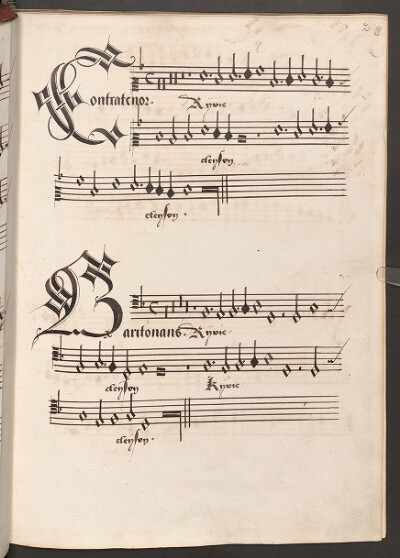 Contratenor. Kyrie
eleyson
eleyson.
Baritonans. Kyrie
eleyson Kyrie
eleyson.